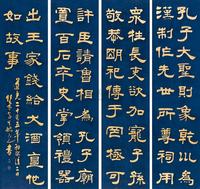 孔子大聖則象乾坤為
漢制作先世所尊祠用
衆牲長吏欲加寵子孫
敬恭明祀傳于罔極可
許臣請魯相為孔子廟
置百石卒史掌領禮器
出王家錢給犬酒直他
如故事